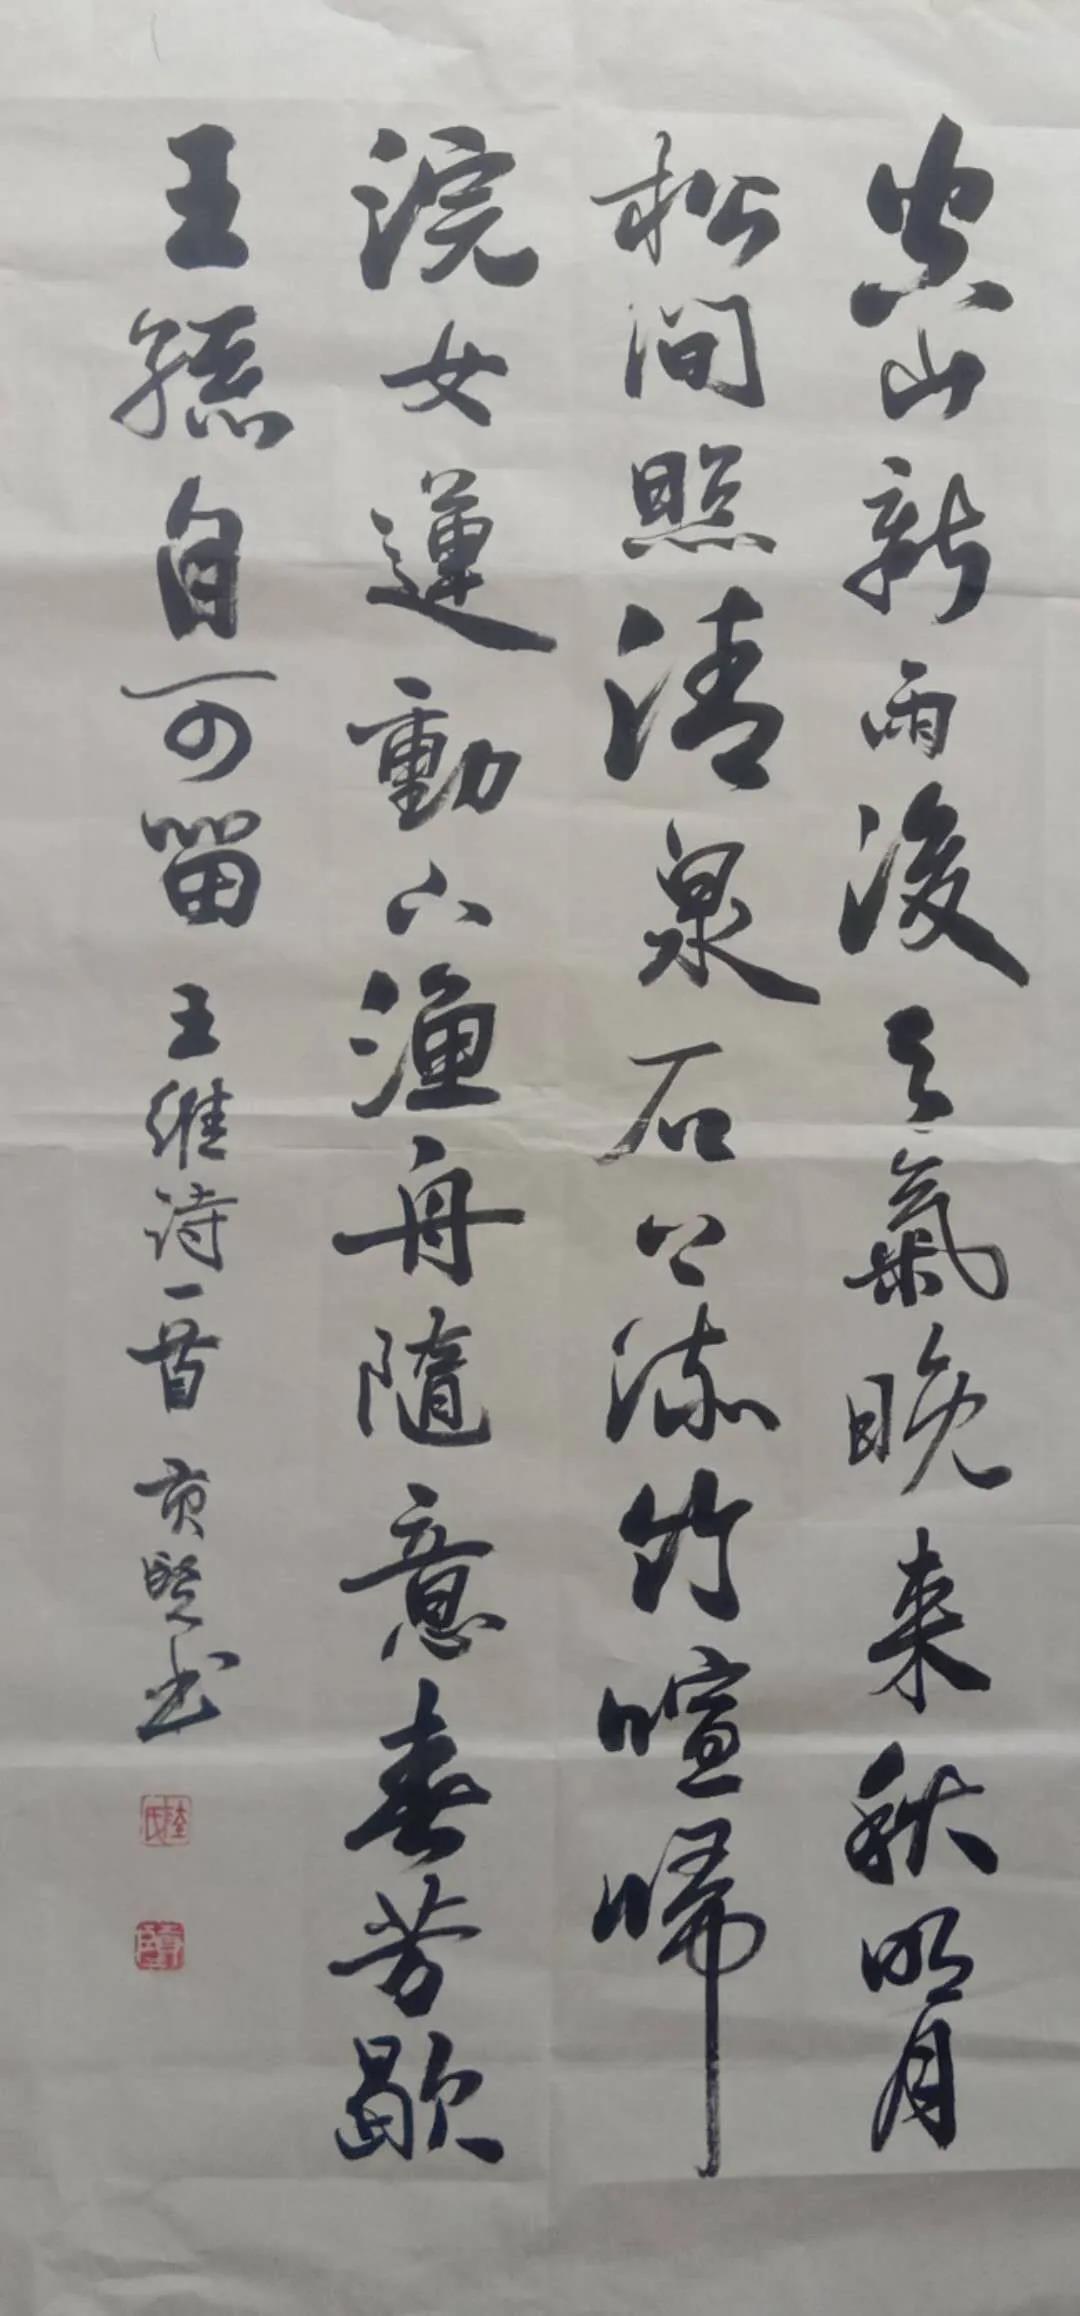 空山新雨後天氣晚来秋明月
松间照清泉石上流竹喧歸
浣女蓮動下漁舟隨意春芳歇
王孫自可留 王維诗一首 賢书
陸氏